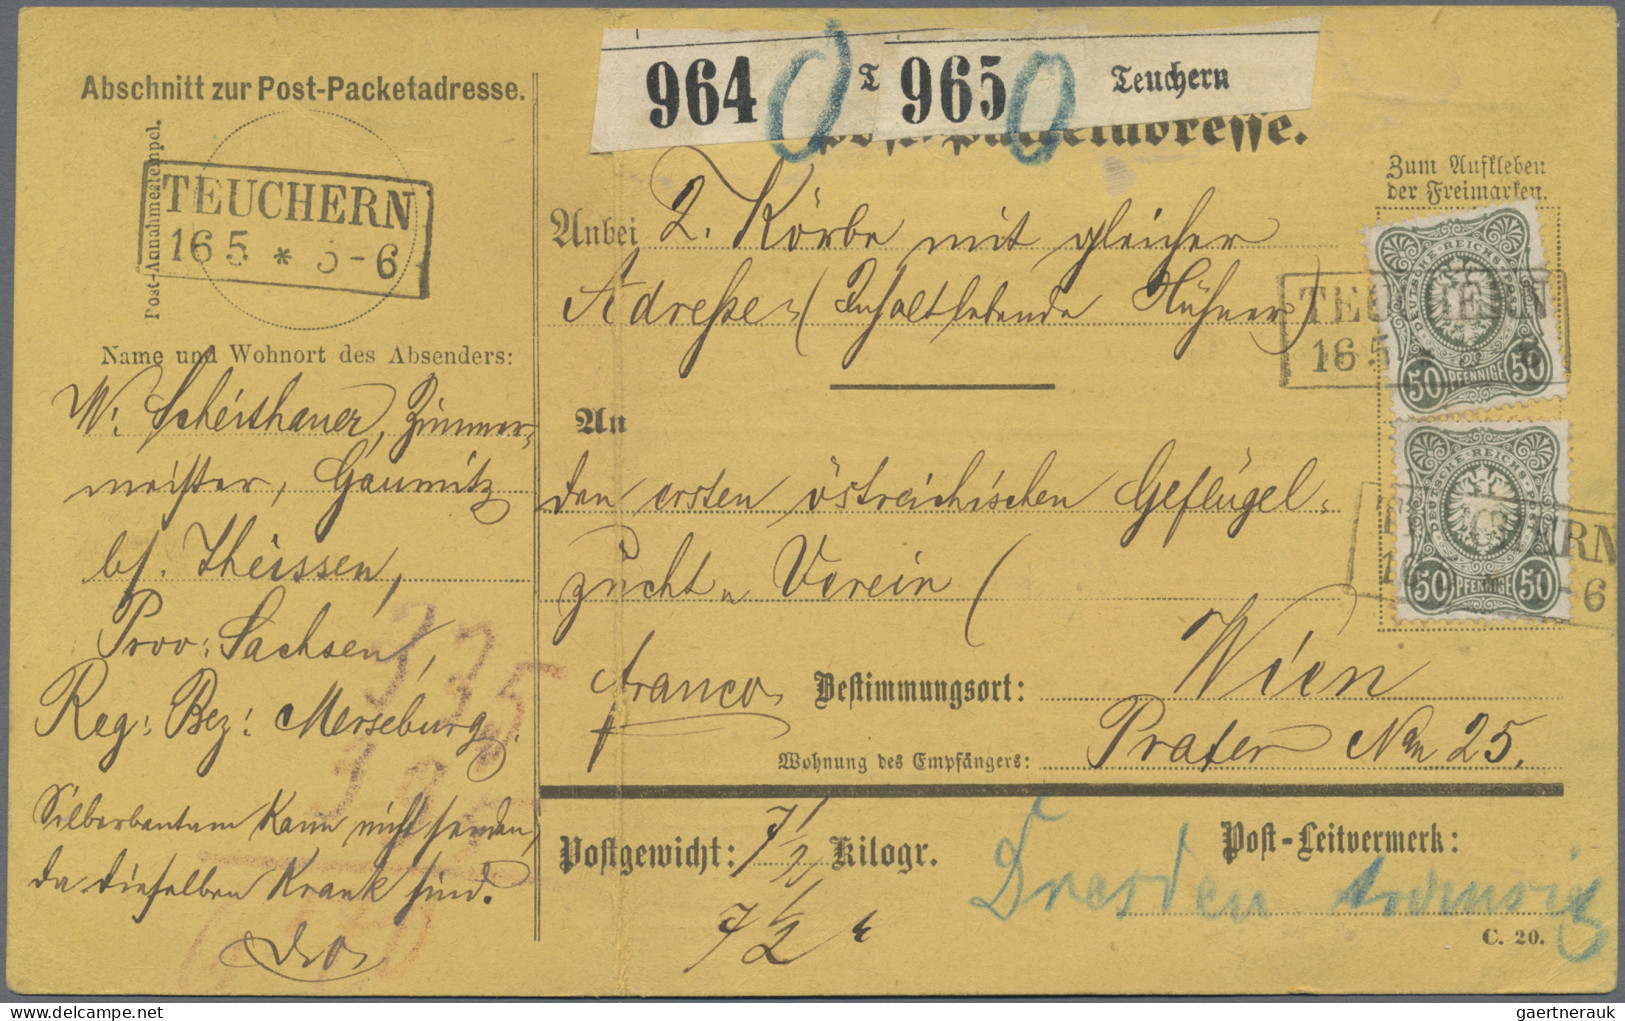 Abschnitt zur Post-Packetadresse.
Post-Annahmestempel.
TEUCHERN
16 5 * 5-6
Name und Wohnort des Absenders:
W. Scheithauer, Zimmer-
meister, Gaumitz
bf. Theissen,
Prov: Sachsen,
Reg: Bez: Merseburg.
Silberbantam kann nicht senden,
da dieselben krank sind.
D. O.
335
964 T
965 Teuchern
Post-Packetadresse.
Zum Aufkleben
der Freimarken.
Anbei 2. Körbe mit gleicher
Adresse (Inhalt lebende Hühner)
An
den ersten östreichischen Geflügel-
zucht-Verein (
franco
Bestimmungsort: Wien
Wohnung des Empfängers: Prater No 25.
Postgewicht: 7 1/2 Kilogr.
7 1/2 k
Post-Leitvermerk:
Dresden
C. 20.
DEUTSCHE REICHS-POST
50 PFENNIGE 50
TEUCHERN
16 5 * 6
DEUTSCHE REICHS-POST
50 PFENNIGE 50
RN
-6
gaertnerauk